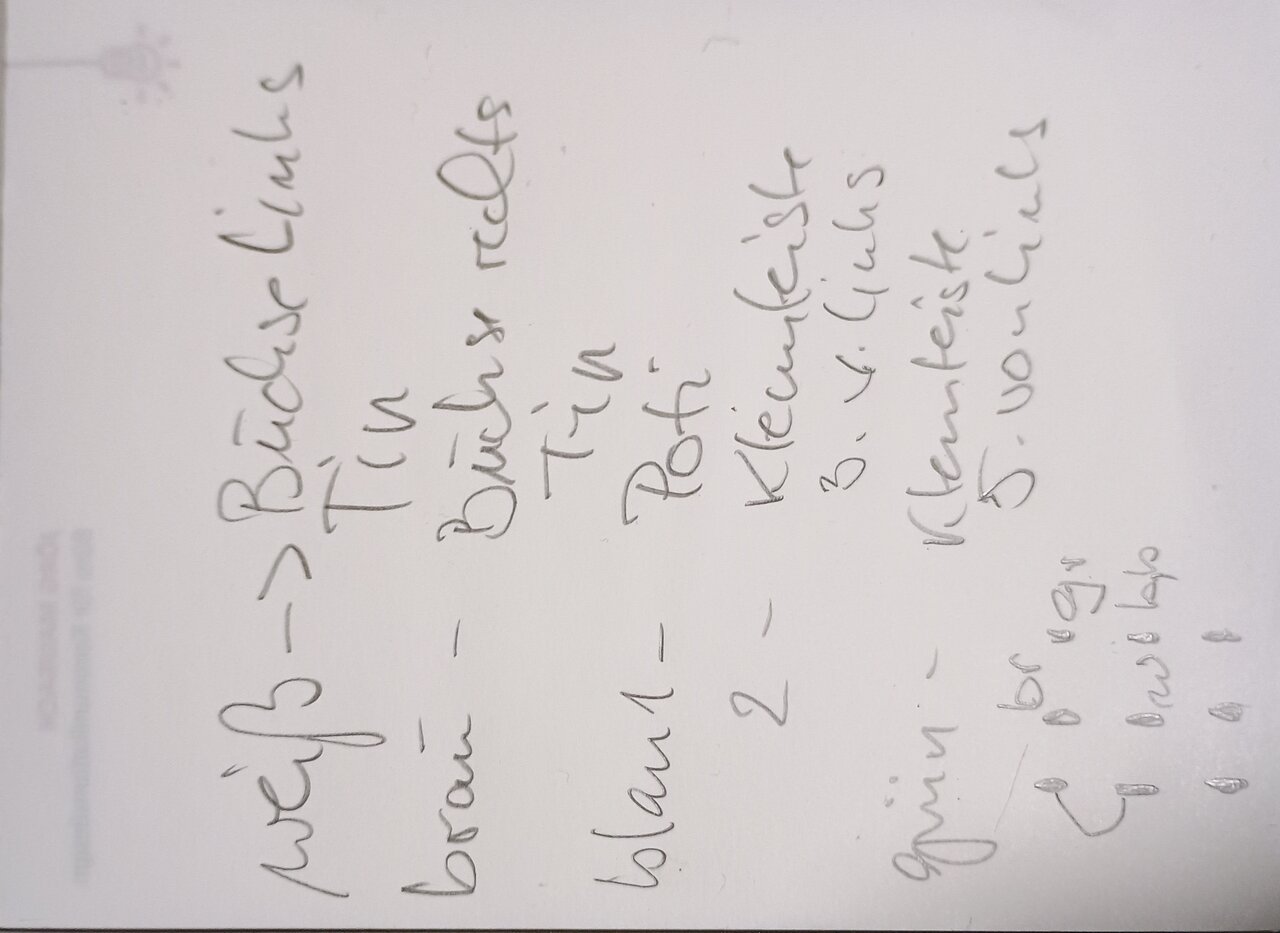 weiß -> Büchse links
Tür
braun - Büchse rechts
Tür
blau 1 - Poti
2 - Klemmleiste
3. v. links
grün - Klemmleiste
5. von links
br gr
w